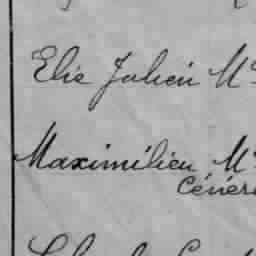 Elie Julien M
Maximilien M
Cénér